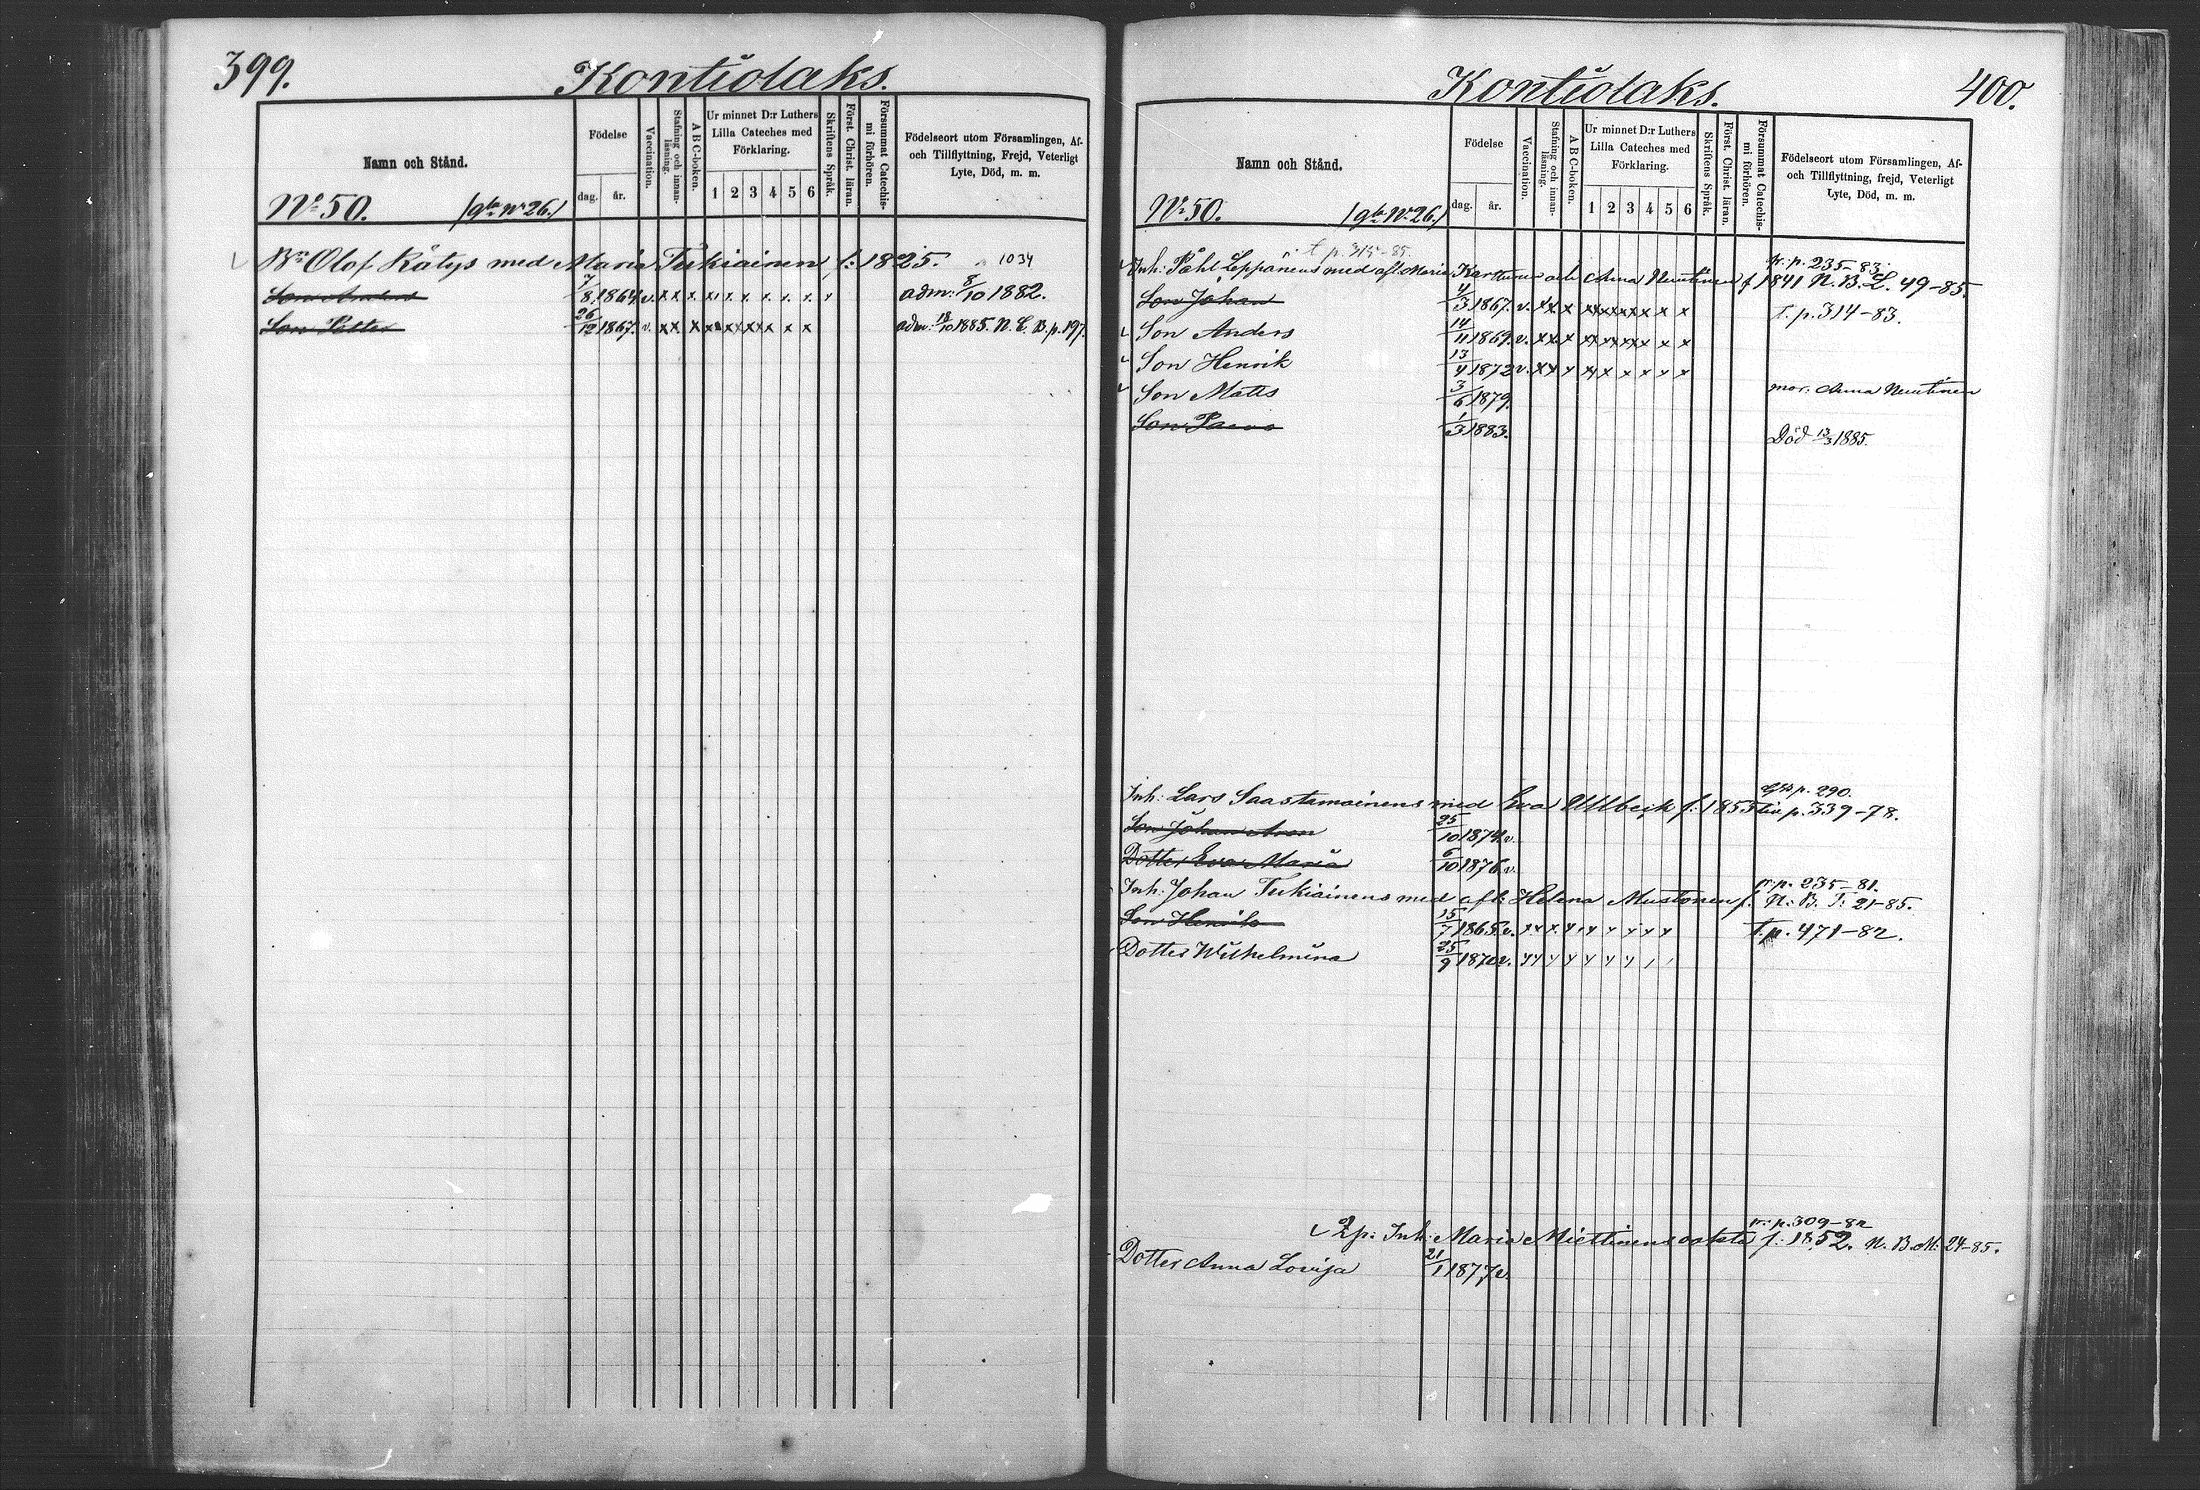 399.
Kontiolaks.
Namn och Stånd.
Födelse
dag.
år.
Vaccination.
Stafning och innan-
läsning.
A B C-boken.
Ur minnet D:r Luthers
Lilla Cateches med
Förklaring.
1 2 3 4 5 6
Skriftens Språk.
Först. Christ. läran.
Försummat Catechis-
mi förhören.
Födelseort utom Församlingen, Af-
och Tillflyttning, Frejd, Veterligt
Lyte, Död, m. m.
No 50. /gla No 26./
Bn Olof Rätys med Maria Tukiainen, f: 1825. 1034
Son 7/8 1864 v. x x x x x x x x x x adm: 8/10 1882.
Son Petter 26/12 1867. v. x x x x x x x x x adm. 18/10 1885. N. E. B. p. 197.
Kontiolaks.
400.
Namn och Stånd.
Födelse
dag.
år.
Vaccination.
Stafning och innan-
läsning.
A B C-boken.
Ur minnet D:r Luthers
Lilla Cateches med
Förklaring.
1 2 3 4 5 6
Skriftens Språk.
Först. Christ. läran.
Försummat Catechis-
mi förhören.
Födelseort utom Församlingen, Af-
och Tillflyttning, frejd, Veterligt
Lyte, Död, m. m.
No 50. /gla No 26./
t p. 315-85. fr. p. 235-83.
Inh: Påhl Leppänens med afl. Maria Karttunen och Anna Nuutinen f 1841 N. B. L. 49-85.
Son Johan 4/3 1867. v. x x x x x x x x x T. p. 314-83.
Son Anders 14/11 1869. v. x x x x x x x x x
Son Henrik 13/4 1872 v. x x x x x x x x x
Son Matts 3/6 1879. mor: Anna Nuutinen
Son Paavo 1/3 1883. Död 13/3 1885.
p. 290.
Inh: Lars Saastamoinens med Eva Ullbejk f: 1855 p. 339-78.
Son Johan Aron 25/10 1874 v.
Dotter Eva Maria 6/10 1876 v.
fr. p. 235-81.
Inh: Johan Tukiainens med afl: Helena Mustonen f. N. B. T. 21-85.
Son Henrik 15/7 1865 v. x x x x x x x x x T. p. 471-82.
Dotter Wilhelmina 25/9 1870 v. x x x x x x x / /
fr: p. 309-82
Lp: Inh: Maria Miettinens oakta f: 1852. N. B. M: 24-85.
Dotter Anna Lovisa 21/1 1877 v.